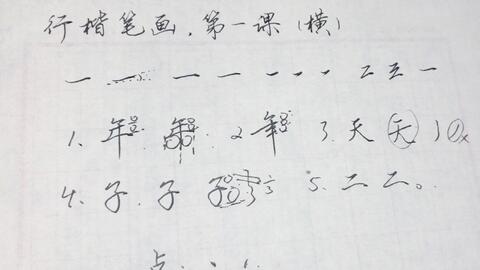 行楷笔画，第一课（横）
一 一 一 一 一 一 一 二 二 一
1. 年 年 2 年 3. 天 天
4. 子. 子 子 5. 二 二。
点